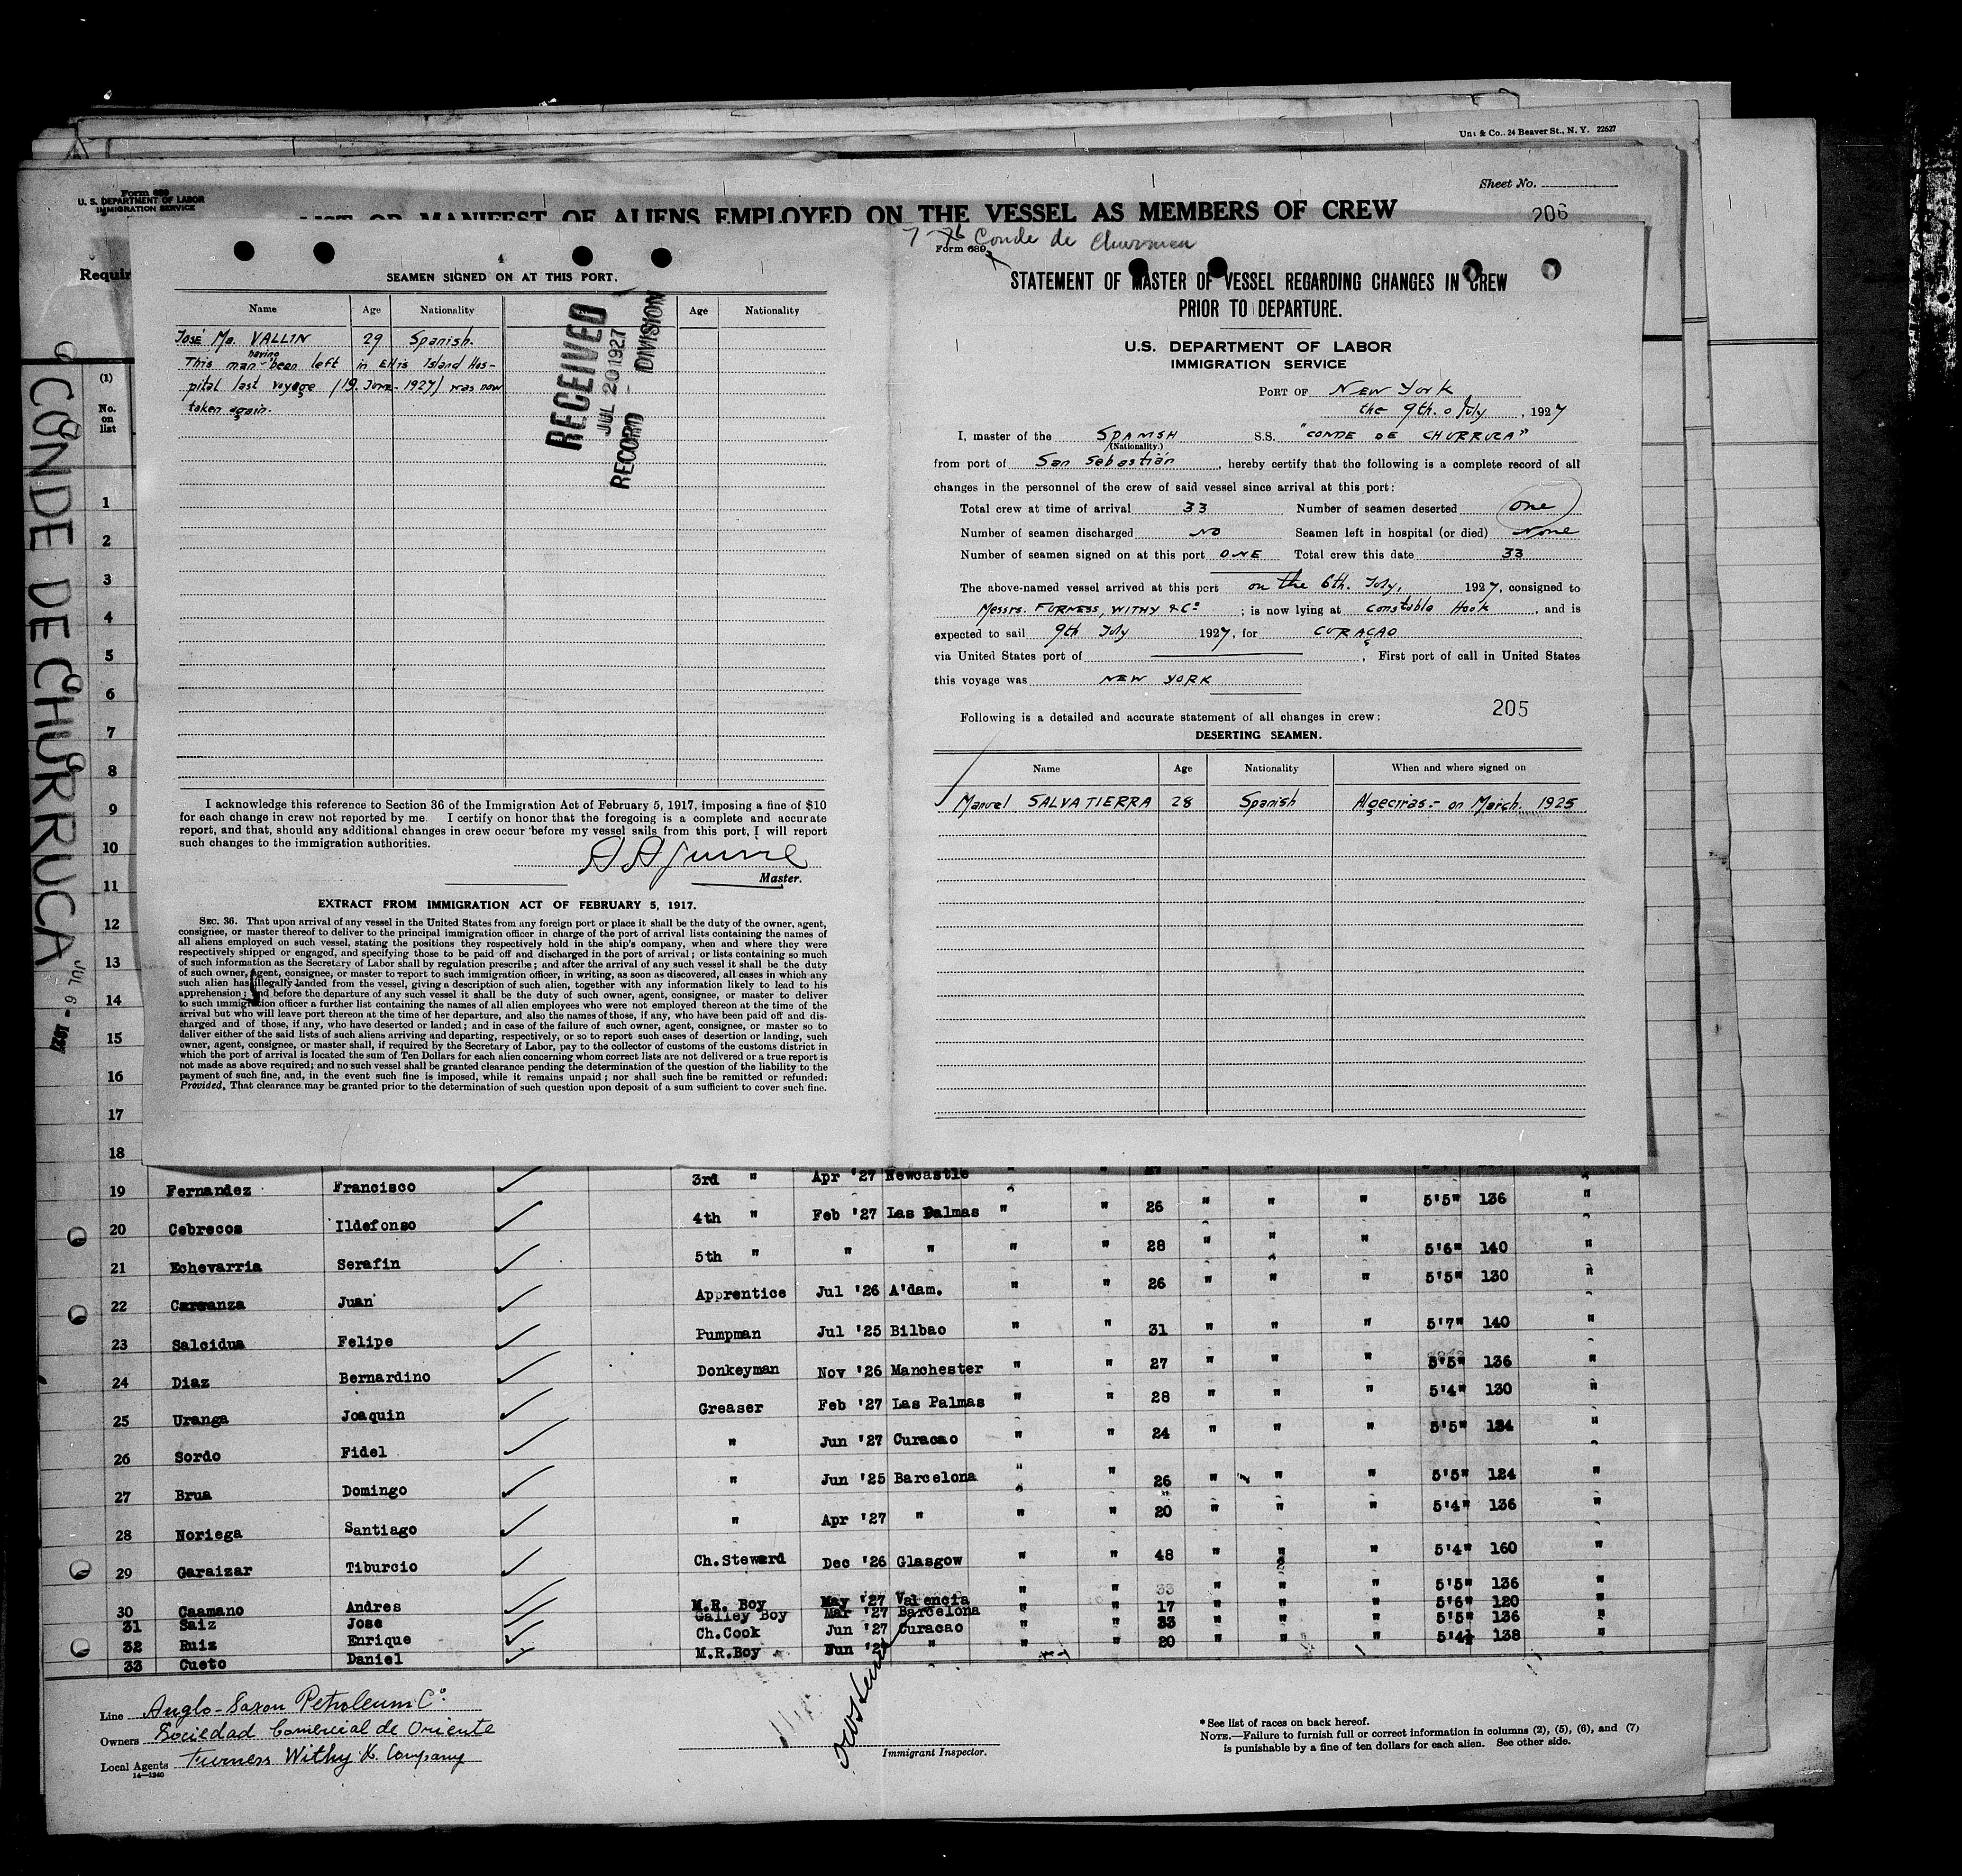 Co., 24 Beaver St., N. Y. 22627
Sheet No.
Form 689
U. S. DEPARTMENT OF LABOR
IMMIGRATION SERVICE
LIST OR MANIFEST OF ALIENS EMPLOYED ON THE VESSEL AS MEMBERS OF CREW
206
Requir
CONDE DE CHURRUCA
JUL 6 - 1927
(1)
No.
on
list
1
2
3
4
5
6
7
8
9
10
11
12
13
14
15
16
17
18
4
SEAMEN SIGNED ON AT THIS PORT.
Name Age Nationality Age Nationality
José Ma. VALLIN 29 Spanish.
This man having been left in Ellis Island Hos-
pital last voyage (19. June - 1927) was now
taken again.
RECEIVED
JUL 20 1927
RECORD - DIVISION
I acknowledge this reference to Section 36 of the Immigration Act of February 5, 1917, imposing a fine of $10
for each change in crew not reported by me. I certify on honor that the foregoing is a complete and accurate
report, and that, should any additional changes in crew occur before my vessel sails from this port, I will report
such changes to the immigration authorities.
Master.
EXTRACT FROM IMMIGRATION ACT OF FEBRUARY 5, 1917.
SEC. 36. That upon arrival of any vessel in the United States from any foreign port or place it shall be the duty of the owner, agent,
consignee, or master thereof to deliver to the principal immigration officer in charge of the port of arrival lists containing the names of
all aliens employed on such vessel, stating the positions they respectively hold in the ship's company, when and where they were
respectively shipped or engaged, and specifying those to be paid off and discharged in the port of arrival; or lists containing so much
of such information as the Secretary of Labor shall by regulation prescribe; and after the arrival of any such vessel it shall be the duty
of such owner, agent, consignee, or master to report to such immigration officer, in writing, as soon as discovered, all cases in which any
such alien has illegally landed from the vessel, giving a description of such alien, together with any information likely to lead to his
apprehension; and before the departure of any such vessel it shall be the duty of such owner, agent, consignee, or master to deliver
to such immigration officer a further list containing the names of all alien employees who were not employed thereon at the time of the
arrival but who will leave port thereon at the time of her departure, and also the names of those, if any, who have been paid off and dis-
charged and of those, if any, who have deserted or landed; and in case of the failure of such owner, agent, consignee, or master so to
deliver either of the said lists of such aliens arriving and departing, respectively, or so to report such cases of desertion or landing, such
owner, agent, consignee, or master shall, if required by the Secretary of Labor, pay to the collector of customs of the customs district in
which the port of arrival is located the sum of Ten Dollars for each alien concerning whom correct lists are not delivered or a true report is
not made as above required; and no such vessel shall be granted clearance pending the determination of the question of the liability to the
payment of such fine, and, in the event such fine is imposed, while it remains unpaid; nor shall such fine be remitted or refunded:
Provided, That clearance may be granted prior to the determination of such question upon deposit of a sum sufficient to cover such fine.
Conde de
Form 689
STATEMENT OF MASTER OF VESSEL REGARDING CHANGES IN CREW
PRIOR TO DEPARTURE.
U.S. DEPARTMENT OF LABOR
IMMIGRATION SERVICE
PORT OF NEW YORK
the 9th. o July, 1927
I, master of the SPANISH S.S. "CONDE DE CHURRUCA"
(Nationality.)
from port of San Sebastián, hereby certify that the following is a complete record of all
changes in the personnel of the crew of said vessel since arrival at this port:
Total crew at time of arrival 33 Number of seamen deserted one
Number of seamen discharged NO Seamen left in hospital (or died) None
Number of seamen signed on at this port ONE Total crew this date 33
The above-named vessel arrived at this port on the 6th. July, 1927, consigned to
Messrs. FURNESS, WITHY & Co; is now lying at Constable Hook, and is
expected to sail 9th July 1927, for CURAÇAO
via United States port of , First port of call in United States
this voyage was NEW YORK
205
Following is a detailed and accurate statement of all changes in crew:
DESERTING SEAMEN.
Name Age Nationality When and where signed on
Manuel SALVATIERRA 28 Spanish Algeciras - on March. 1925
19 Fernandez Francisco 3rd " Apr '27 Newcastle
20 Cebrecos Ildefonso 4th " Feb '27 Las Palmas " " 26 " " " 5'5" 136 "
21 Echevarria Serafin 5th " " " " " 28 " " " 5'6" 140 "
22 Carranza Juan Apprentice Jul '26 A'dam. " " 26 " " " 5'5" 130 "
23 Salcidua Felipe Pumpman Jul '25 Bilbao " " 31 " " " 5'7" 140 "
24 Diaz Bernardino Donkeyman Nov '26 Manchester " " 27 " " " 5'5" 136 "
25 Uranga Joaquin Greaser Feb '27 Las Palmas " " 28 " " " 5'4" 130 "
26 Sordo Fidel " Jun '27 Curacao " " 24 " " " 5'5" 134 "
27 Brua Domingo " Jun '25 Barcelona " " 26 " " " 5'5" 124 "
28 Noriega Santiago " Apr '27 " " " 20 " " " 5'4" 136 "
29 Garaizar Tiburcio Ch.Steward Dec '26 Glasgow " " 48 " " " 5'4" 160 "
30 Caamano Andres M.R. Boy May '27 Valencia " " 33 " " " 5'5" 136 "
31 Saiz Jose Galley Boy Mar '27 Barcelona " " 17 " " " 5'6" 120 "
32 Ruiz Enrique Ch.Cook Jun '27 Curacao " " 33 " " " 5'5" 136 "
33 Cueto Daniel M.R.Boy Jun '27 " " " 20 " " " 5'4½ 138 "
Line Anglo-Saxon Petroleum Co.
Owners Sociedad Comercial de Oriente
Local Agents Turness Withy & Company
14—1240
Immigrant Inspector.
* See list of races on back hereof.
NOTE.—Failure to furnish full or correct information in columns (2), (5), (6), and (7)
is punishable by a fine of ten dollars for each alien. See other side.